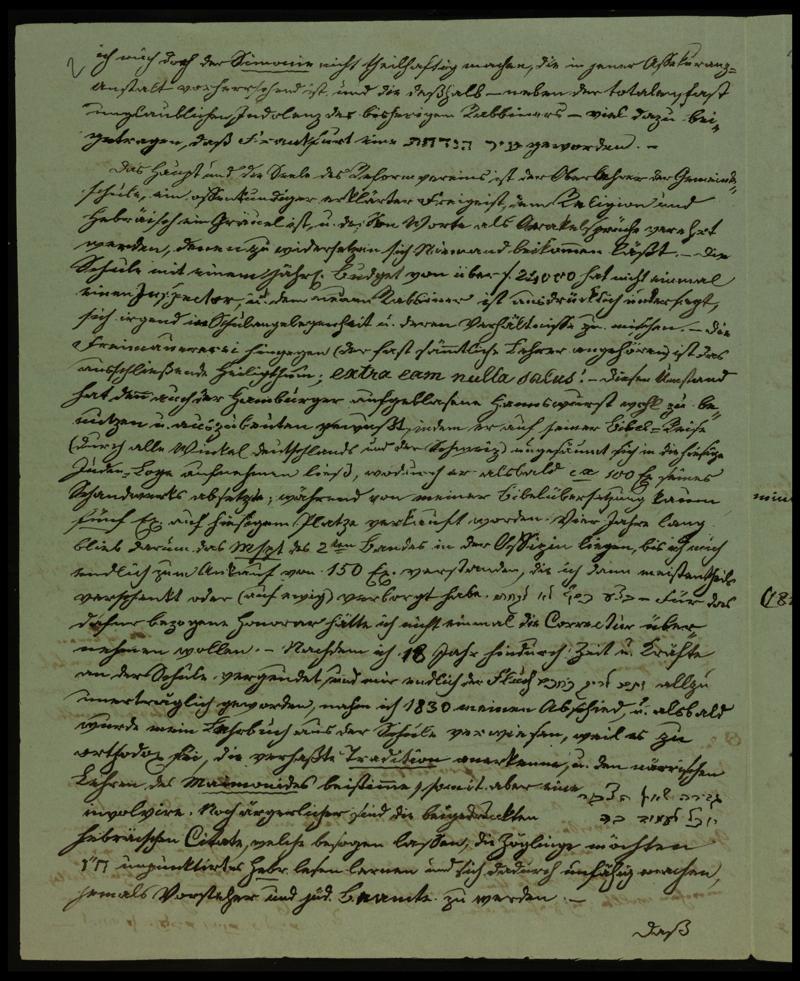 ich mich doch der Simonie nicht theilhaftig machen, die in jener Assekuranz-
Anstalt vorherrschend ist, und die deßhalb – neben der totalen, fast
unglaublichen Indolenz des bisherigen Rabbiners – viel dazu bei-
getragen, daß Frankfurt eine עיר הנדחת geworden. –
Das Haupt und die Seele des Reformvereins ist der Oberlehrer der Gemeinde-
schule, ein offenkundiger erklärter Freigeist, dem Religion und
Hebräisch ein Gräuel ist, u. dessen Worte als Orakelsprüche verehrt
werden, denen zu widersetzen sich Niemand beikommen läßt. – Die
Schule mit einem jährl. Budget von über f. 24000 hat nicht einmal
einen Inspector, u. dem neuen Rabbiner ist ausdrücklich untersagt,
sich irgend in Schulangelegenheit u. deren Verhältnisse zu mischen. – Die
Freimaurerei hingegen (der fast sämmtliche Lehrer angehören) ist das
ausschließende Heiligthum; extra eam nulla salus! – Diesen Umstand
hat denn auch der Hamburger aufgeblasene Hannswurst wohl zu be-
nutzen u. auszubeuten gewußt, indem er auf seiner Bibel-Reise
(durch alle Winkel Deutschlands und der Schweiz) ungesäumt sich in die hiesige
Juden-Loge aufnehmen ließ, wodurch er alsbald ca 100 Ex. seines
Schandwerks absetzte; während von meiner Bibelübersetzung kaum
fünf Ex. auf hiesigem Platze verkauft worden. Vier Jahre lang
blieb darum das Mspt des 2ten Bandes in der Offizin liegen, bis ich mich
endlich zum Ankauf von 150 Ex. verstanden, die ich dann meistentheils
verschenkt oder (auf ewig) verborgt habe. – Für das
dafür bezogene Honorar hätte ich nicht einmal die Correctur über-
nehmen wollen. – Nachdem ich 18 Jahr hindurch Zeit u. Kräfte
an der Schule vergeudet, und mir endlich der Fluch allzu
unerträglich geworden, nahm ich 1830 meinen Abschied, u. alsbald
wurde mein Lehrbuch aus der Schule verwiesen, weil es zu
orthodox sei, die verhaßte Tradition anerkenne, u. den närrischen
Lehren des Maimonides beistimme, somit aber eine
יוכל לעמוד בה
involvire. Noch ärgerlicher sind die beigedruckten
hebräischen Citate, welche besorgen lassen, die Zöglinge möchten
ח״ו unpunktirtes Hebr. lesen lernen und sich dadurch unfähig machen,
jemals Vorsteher und jüd. Beamte zu werden. –
Daß